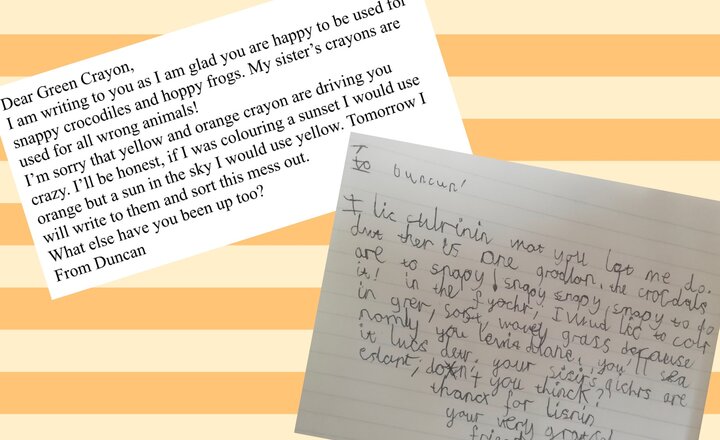 Dear Green Crayon,
I am writing to you as I am glad you are happy to be used for
snappy crocodiles and hoppy frogs. My sister’s crayons are
used for all wrong animals!
I’m sorry that yellow and orange crayon are driving you
crazy. I’ll be honest, if I was colouring a sunset I would use
orange but a sun in the sky I would use yellow. Tomorrow I
will write to them and sort this mess out.
What else have you been up too?
From Duncan
To
Duncun!
I lic culrinin mat you lat me do.
but ther is one the
are to snapy! snapy snapy snapy to do
it! in the I Wud lic to colr
in wavey grass because
nomly you you'll sea
it lucs your are
don't you thinck?
thancx for lisnin
your very